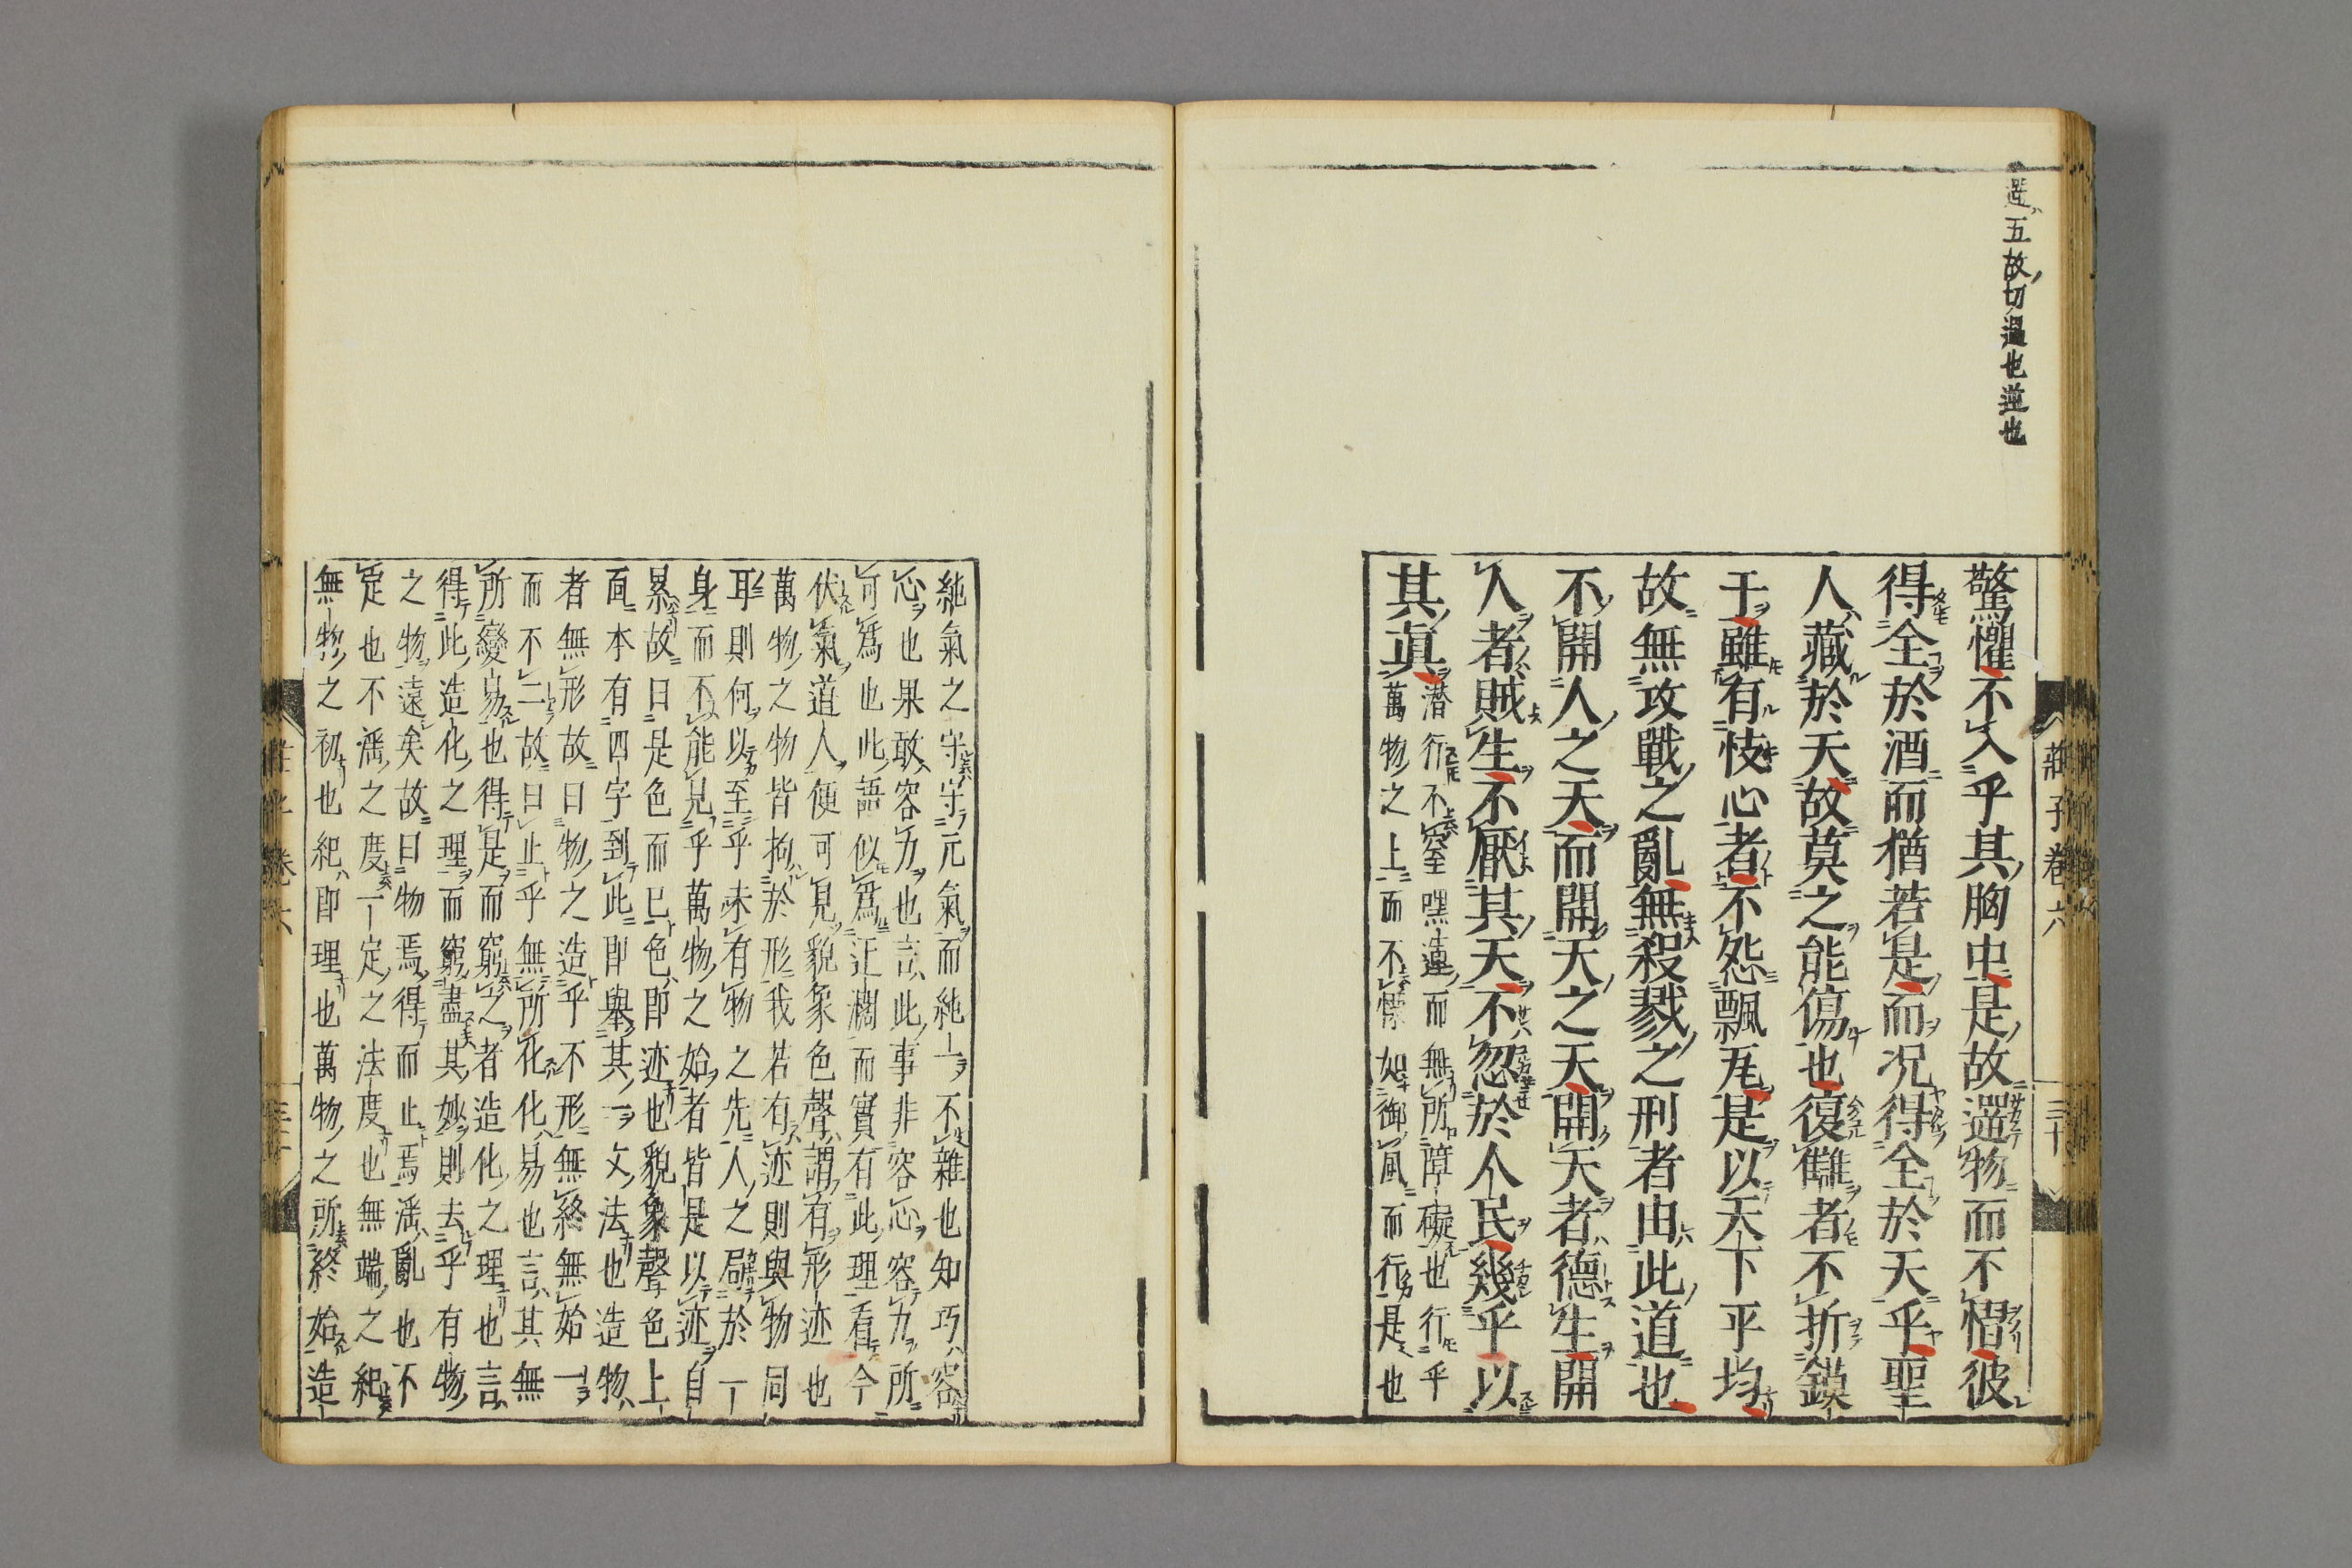 遻五故切遇也逆也
驚懼不入乎其胸中是故遻物而不慴彼
得全於酒而猶若是而况得全於天乎聖
人藏於天故莫之能傷也復讎者不折鏌
干雖有忮心者不怨飄瓦是以天下平均
故無攻戰之亂無殺戮之刑者由此道也
不開人之天而開天之天開天者德生開
人者賊生不厭其天不忽於人民幾乎以
其眞
潜行不窒嘿運而無所障礙也行乎
萬物之上而不慄如御風而行是也
莊子卷六
三十
純氣之守守元氣而純一不雜也知巧容
心也果敢容力也言此事非容心容力所
可爲也此語似爲迂濶而實有此理看今
伏氣道人便可見貌象色聲謂有形迹也
萬物之物皆拘於形我若有迹則與物同
耳則何以至乎未有物之先人之局於一
身而不能見乎萬物之始者皆是以迹自
累故曰是色而已色即迹也貌象聲色上
面本有四字到此即舉其一文法也造物
者無形故曰物之造乎不形無終無始一
而不二故曰止乎無所化化易也言其無
所變易也得是而窮之者造化之理也言
得此造化之理而窮盡其妙則去乎有物
之物遠矣故曰物焉得而止焉滛亂也不
定也不滛之度一定之法度也無端之紀
無物之初也紀即理也萬物之所終始造